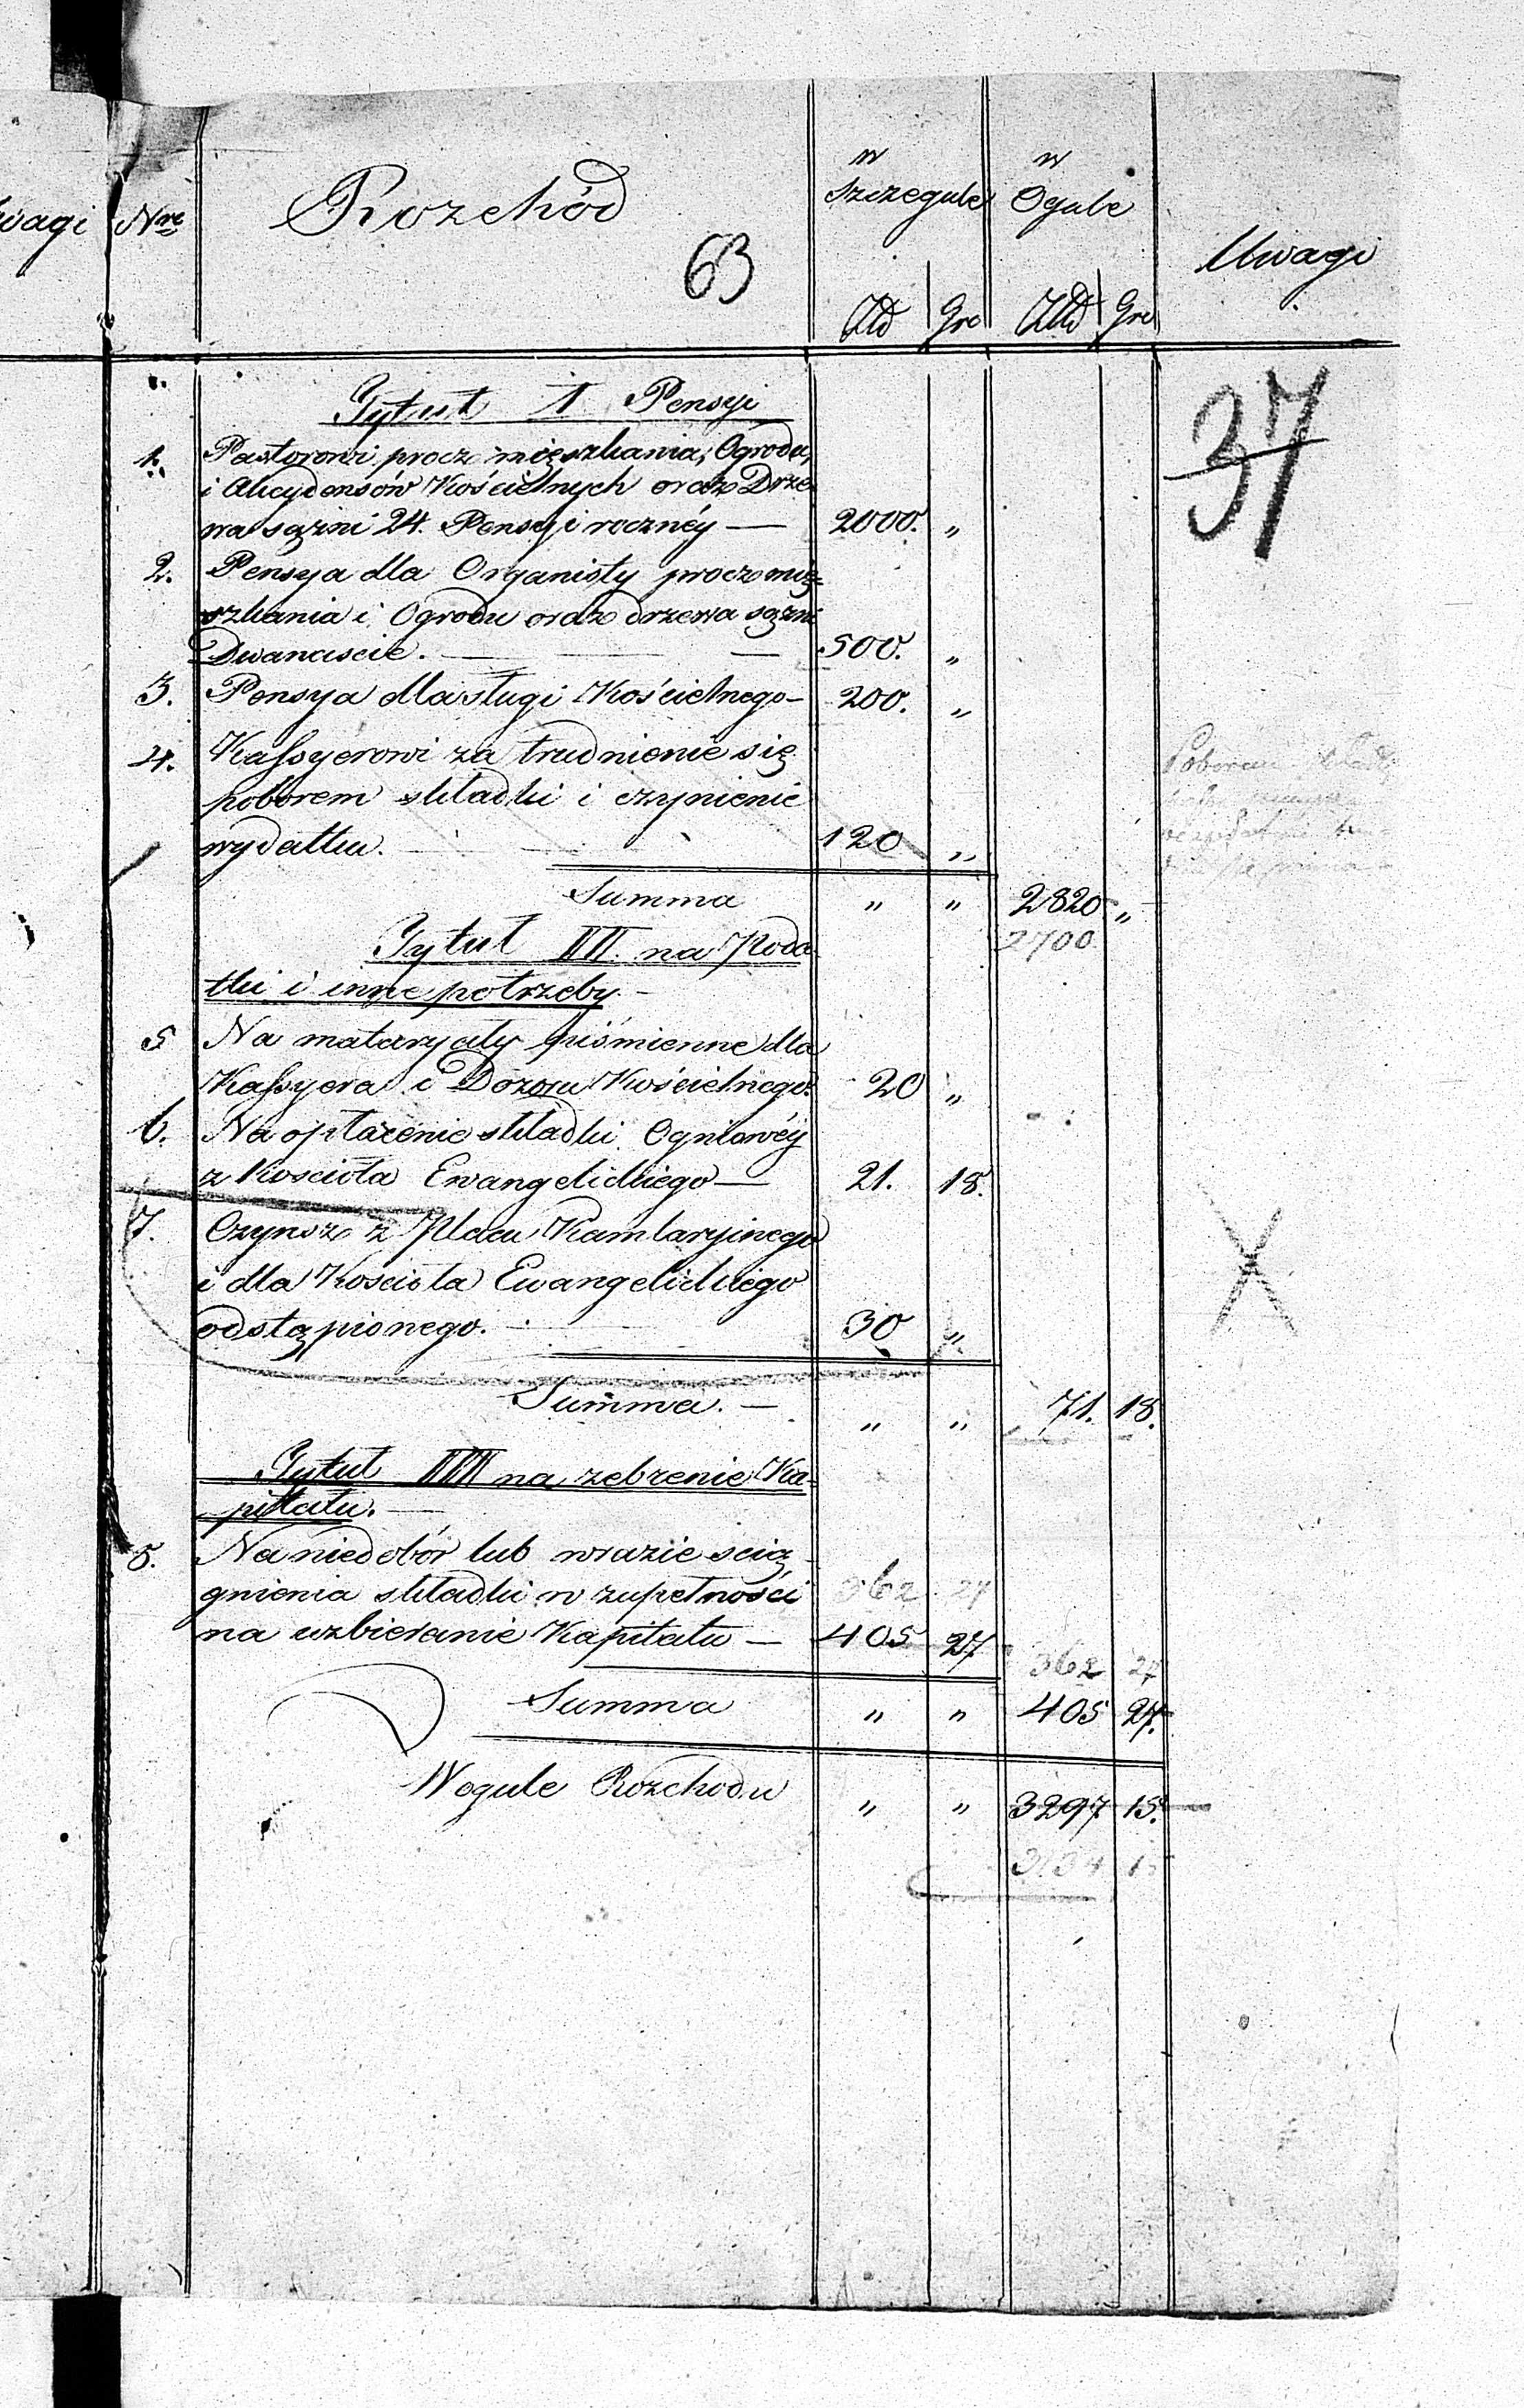 wagi
Nre
Rozchód
w
Szczegule
w
Ogule
Uwagi
63
Złł
Gro
Złł
Gro
37
Tytuł 1 Pensyi
1. Pastorowi procz mięszkania, Ogrodu,
i Akcydensów Kościelnych oraz Drze
wa sążni 24. Pensyi rocznéy — 2000. „
2. Pensya dla Organisty procz mię=
szkania i Ogrodu oraz drzewa sążni
Dwanascie. — 500. „
3. Pensya dla sługi Kościelnego — 200. „
4. Kassyerowi za trudnienie się
poborem składki i czynienie
wydatku. 120 „
Summa „ „ 2820 „
2700
Tytuł III na Poda
tki i inne potrzeby. —
5 Na materyały piśmienne dla
Kassyera i Dozoru Kościelnego. 20 „
6. Na opłacenie składki Ogniowéy
z Kościoła Ewangelickiego — 21. 18.
7. Czynsz z Placu Kamlaryinego
i dla Kościoła Ewangelickiego
odstąpionego. 30 „
Summa. — „ „ 71. 18.
Tytuł IIII na zebrenie Ka=
pitału. —
8. Na niedobór lub wrazie ścią
gnienia składki w zupełności 362 27
na uzbieranie Kapitału — 405 27
362 27
Summa „ „ 405 27.
Wogule Rozchodu „ „ 3297 15.
3134 15